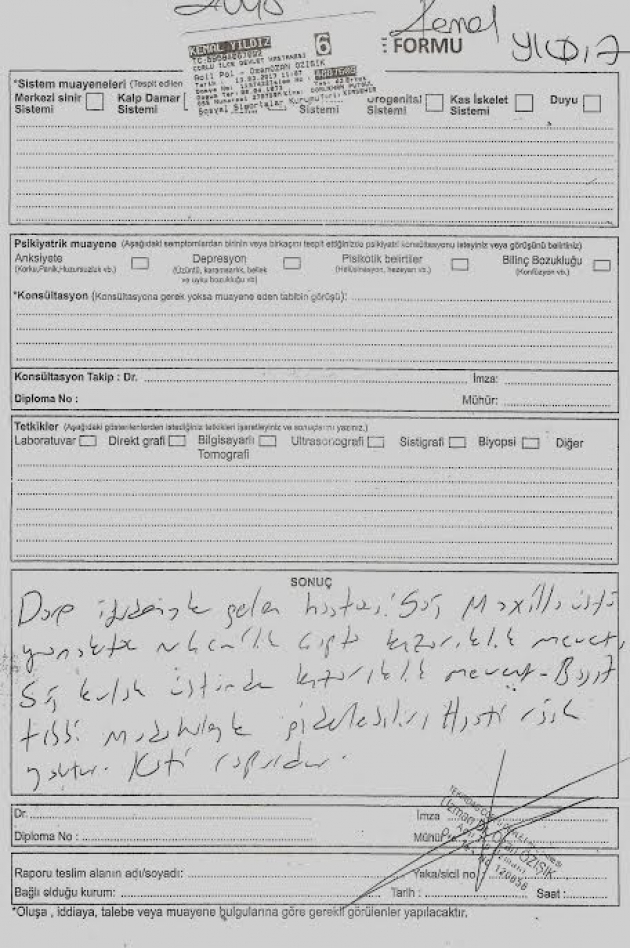 Kemal
YILDIZ
KEMAL YILDIZ
6
FORMU
*Sistem muayeneleri (Tespit edilen
Merkezi sinir Sistemi
Kalp Damar Sistemi
Sistemi
Ürogenital Sistemi
Kas İskelet Sistemi
Duyu
Psikiyatrik muayene (Aşağıdaki semptomlardan birinin veya birkaçını tespit ettiğinizde psikiyatri konsültasyonu isteyiniz veya görüşünü belirtiniz)
Anksiyete
(Korku,Panik,Huzursuzluk vb.)
Depresyon
(Üzüntü, karamsarlık, bellek ve uyku bozukluğu vb)
Psikotik belirtiler
(Halüsinasyon, hezeyan vb.)
Bilinç Bozukluğu
(Konfüzyon vb.)
*Konsültasyon (Konsültasyona gerek yoksa muayene eden tabibin görüşü):
Konsültasyon Takip : Dr.
İmza:
Diploma No :
Mühür:
Tetkikler (Aşağıdaki gösterilenlerden istediğiniz tetkikleri işaretleyiniz ve sonuçlarını yazınız.)
Laboratuvar
Direkt grafi
Bilgisayarlı Tomografi
Ultrasonografi
Sistigrafi
Biyopsi
Diğer
SONUÇ
Darp ifadesiyle gelen hasta. Sağ Maxilla üstü
kızarıklık mevcut,
Sağ kulak üstünde kızarıklık mevcut. Basit
tıbbi müdahaleyle giderilebilir. Hayati risk
yoktur. Kati rapordur.
Dr.
İmza
Diploma No :
Mühür
Raporu teslim alanın adı/soyadı:
Yaka/sicil no
Bağlı olduğu kurum:
Tarih :
Saat :
*Oluşa , iddiaya, talebe veya muayene bulgularına göre gerekli görülenler yapılacaktır.